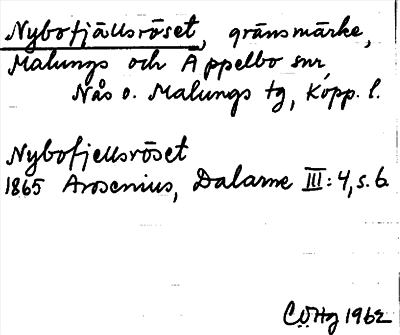 Nybofjällsröset, gränsmärke,
Malungs och Äppelbo snr,
Nås o. Malungs tg, Kopp. l.
Nybofjellsröset
1865 Arosenius, Dalarne III:4, s. 6
1962